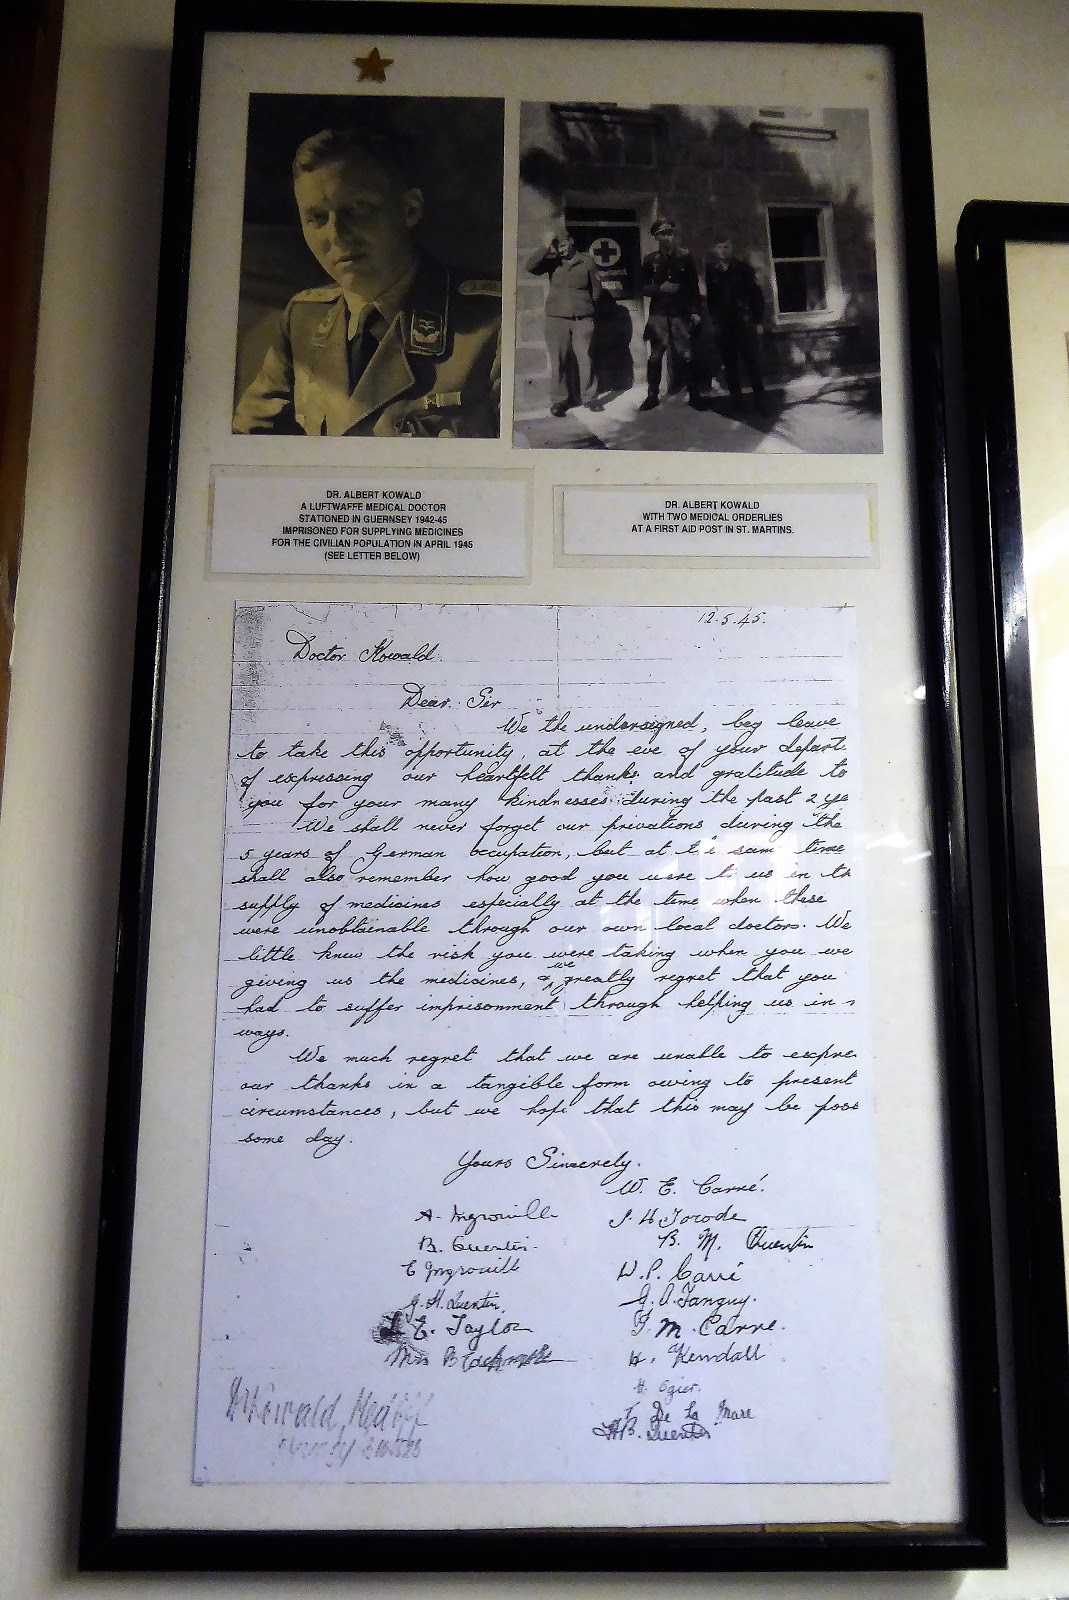 DR. ALBERT KOWALD
A LUFTWAFFE MEDICAL DOCTOR
STATIONED IN GUERNSEY 1942-45
IMPRISONED FOR SUPPLYING MEDICINES
FOR THE CIVILIAN POPULATION IN APRIL 1945
(SEE LETTER BELOW)
DR. ALBERT KOWALD
WITH TWO MEDICAL ORDERLIES
AT A FIRST AID POST IN ST. MARTINS.
12.5.45.
Doctor Kowald.
Dear Sir
We the undersigned, beg leave
to take this opportunity, at the eve of your depart
of expressing our heartfelt thanks and gratitude to
you for your many kindnesses during the past 2 ye
We shall never forget our privations during the
5 years of German occupation, but at the same time
shall also remember how good you were to us in th
supply of medicines especially at the time when these
were unobtainable through our own local doctors. We
little knew the risk you were taking when you we
giving us the medicines, & we greatly regret that you
had to suffer imprisonment through helping us in
ways.
We much regret that we are unable to expre
our thanks in a tangible form owing to present
circumstances, but we hope that this may be poss
some day.
Yours Sincerely.
W. E. Carré.
A. Ingrouille
J. H Torode
B. Quentin.
B. M. Quentin
E Ingrouille
W. P. Carré
G. H. Quentin.
G. A. Tanguy.
E. Taylor
G. M. Carre.
Mrs B
H. Kendall
H. Ogier.
De La Mare
H B. Quentin
Dr Kowald